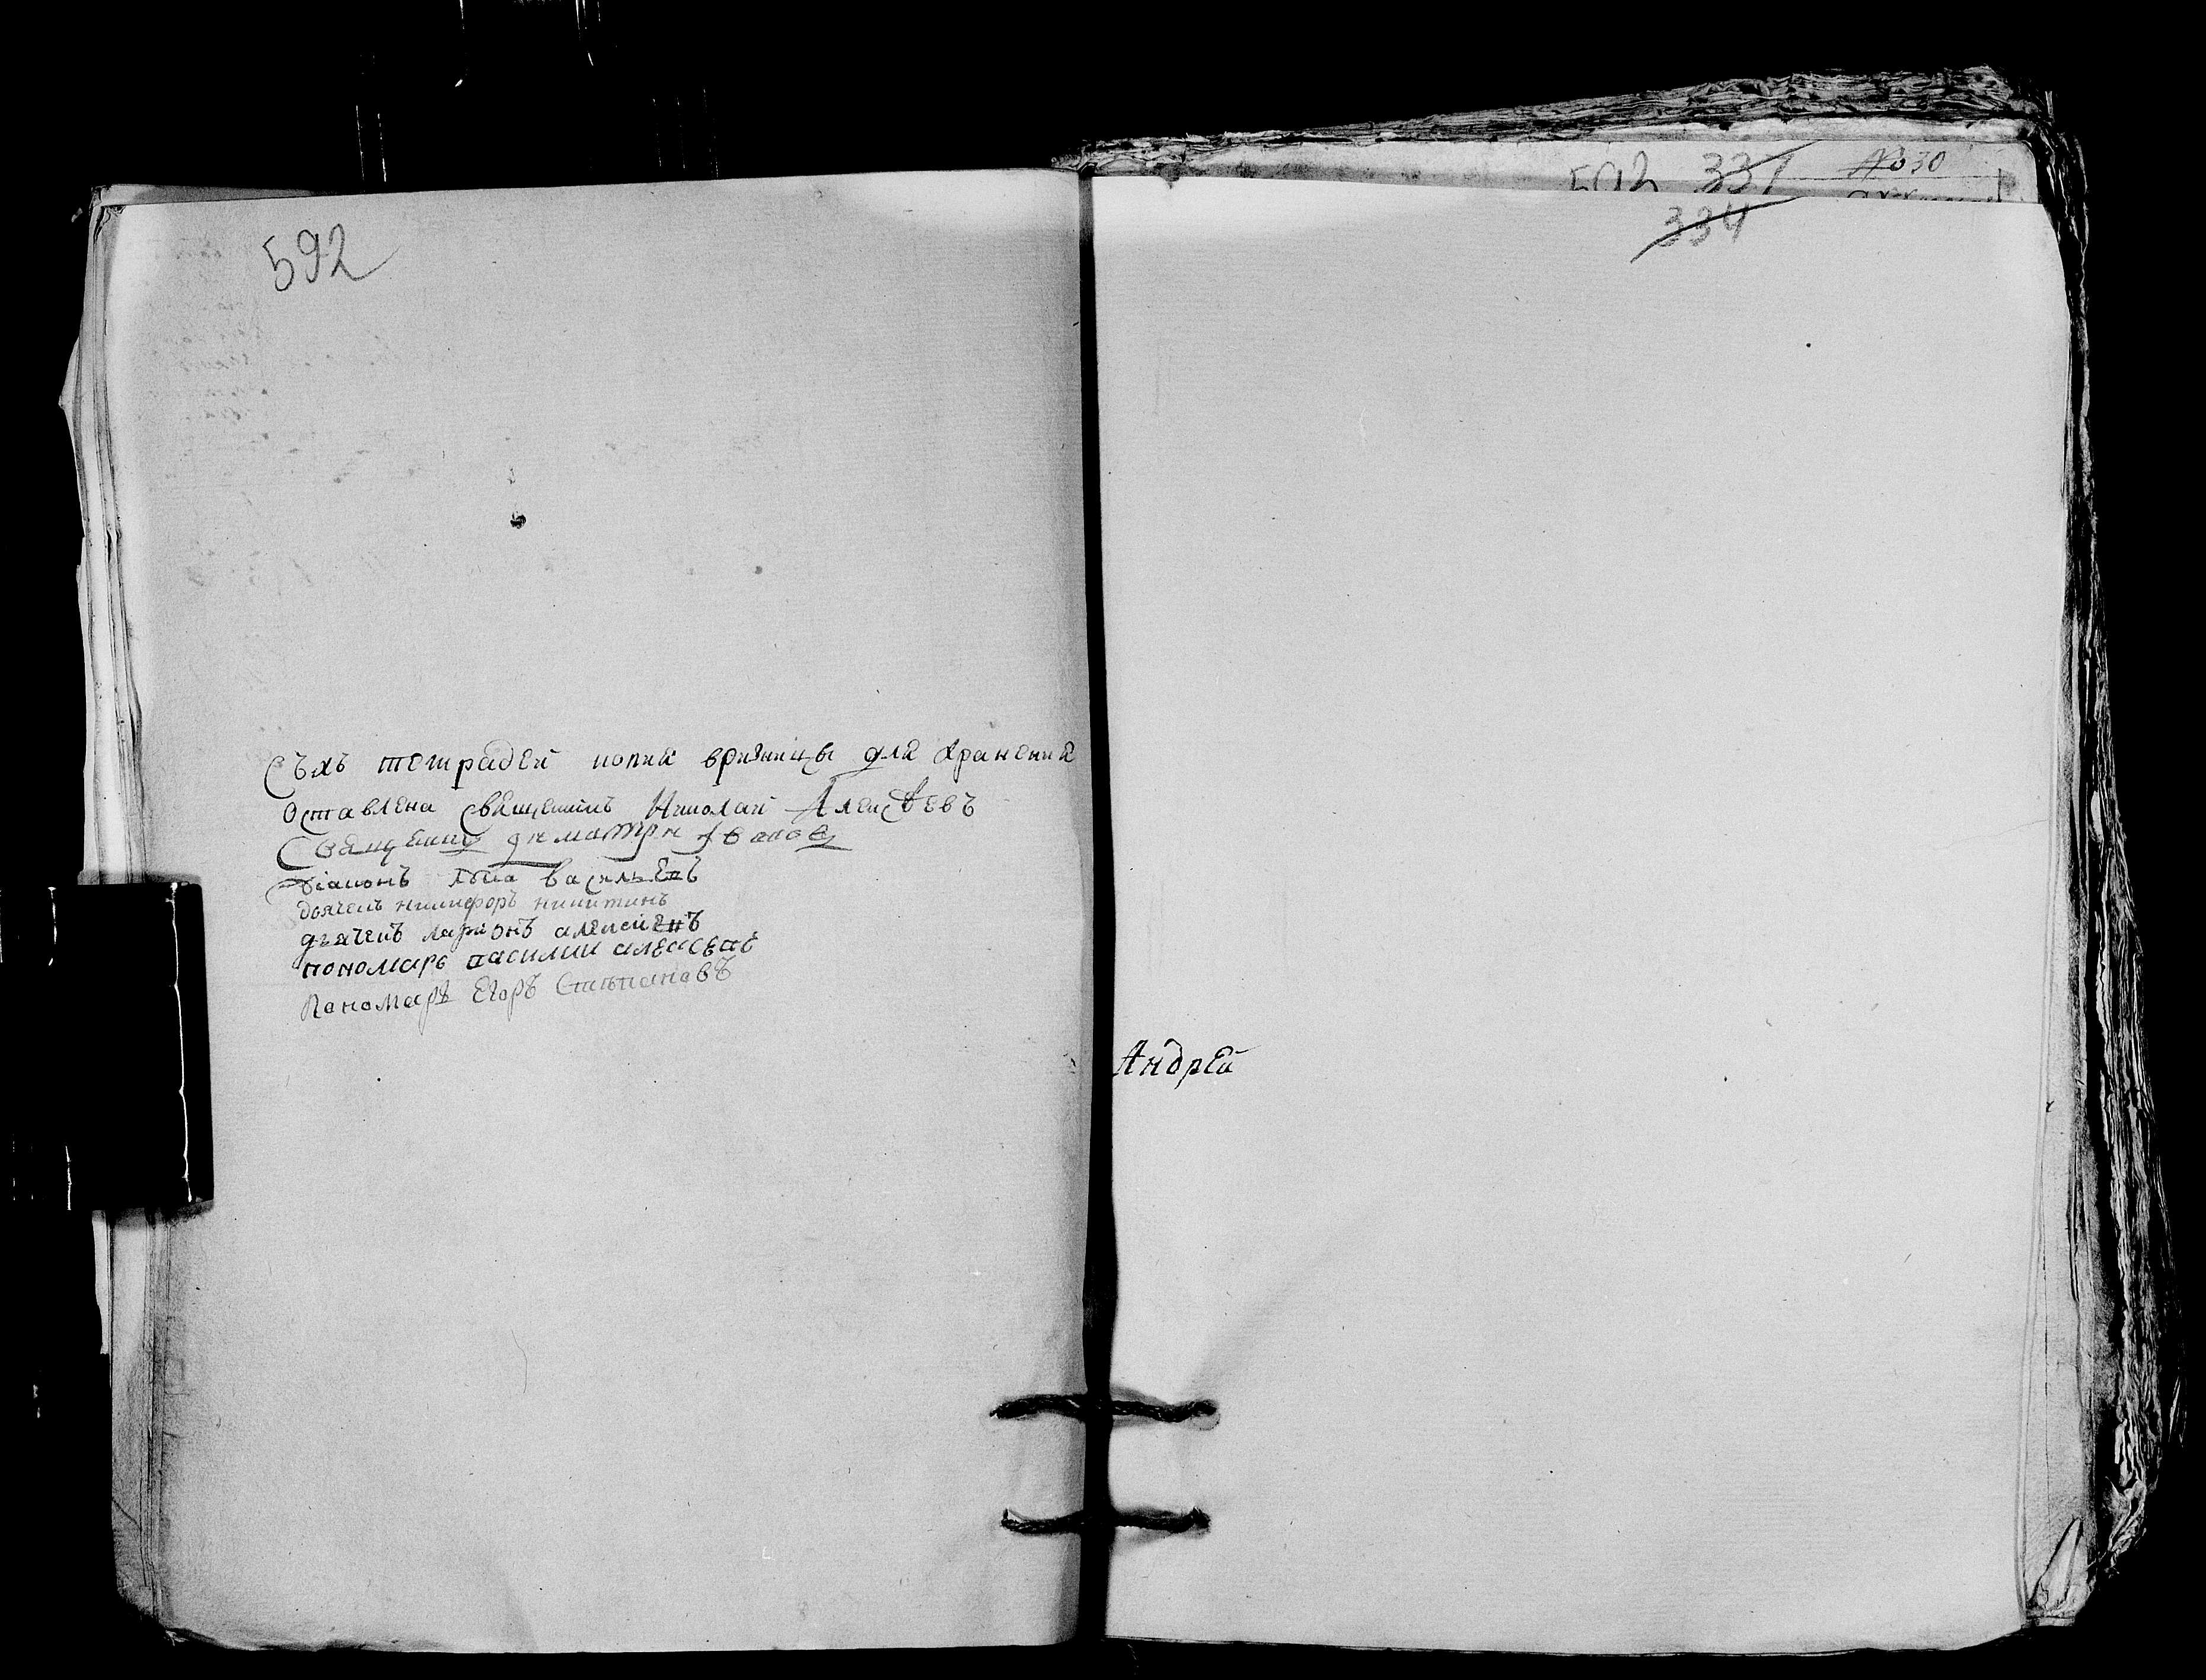 592
Съхъ тетрадей копия вризницы для хранения
оставлена священникъ Николай Алексѣевъ
Священникъ димитри Iвановъ
діаконъ василь͏евъ
дьячекъ никифоръ никитинъ
дьячекъ ларионъ алексиевъ
пономарь василий алексеевъ
Паномарь Егоръ Стипановъ
592 331 №30
334
Андрей